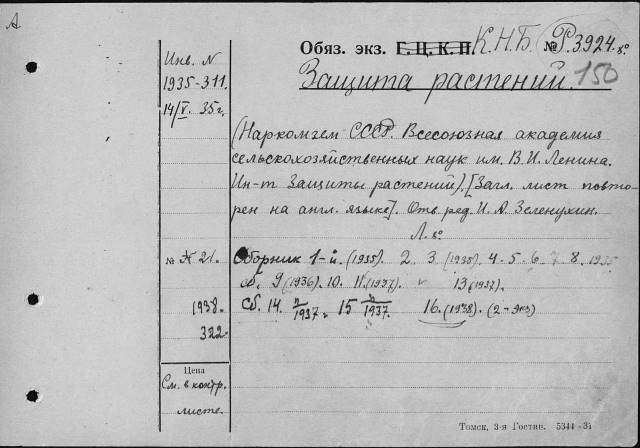 А
Обяз. экз. Г.Ц.К.П. К.Н.Б. № Р.3924. 8°
Защита растений.
150
Инв. N
1935-311.
14/V. 35г.
(Наркомзем СССР. Всесоюзная академия
сельскохозяйственных наук им. В. И. Ленина.
Ин-т Защиты растений). [Загл. лист повто-
рен на англ. языке]. Отв. ред. И. А. Зеленухин.
Л. 8°
№ Ж 21.
Сборник 1-й. (1935). 2. 3. (1935). 4-5-6-7-8. 1935
сб. 9 (1936). 10. 11. (1937). 13 (1937).
Сб. 14. 1937. 15 1937. 16. (1938). (2-экз)
1938.
322
Цена
См. в контр.
листе.
Томск, 3-я Гостип. 5344-34